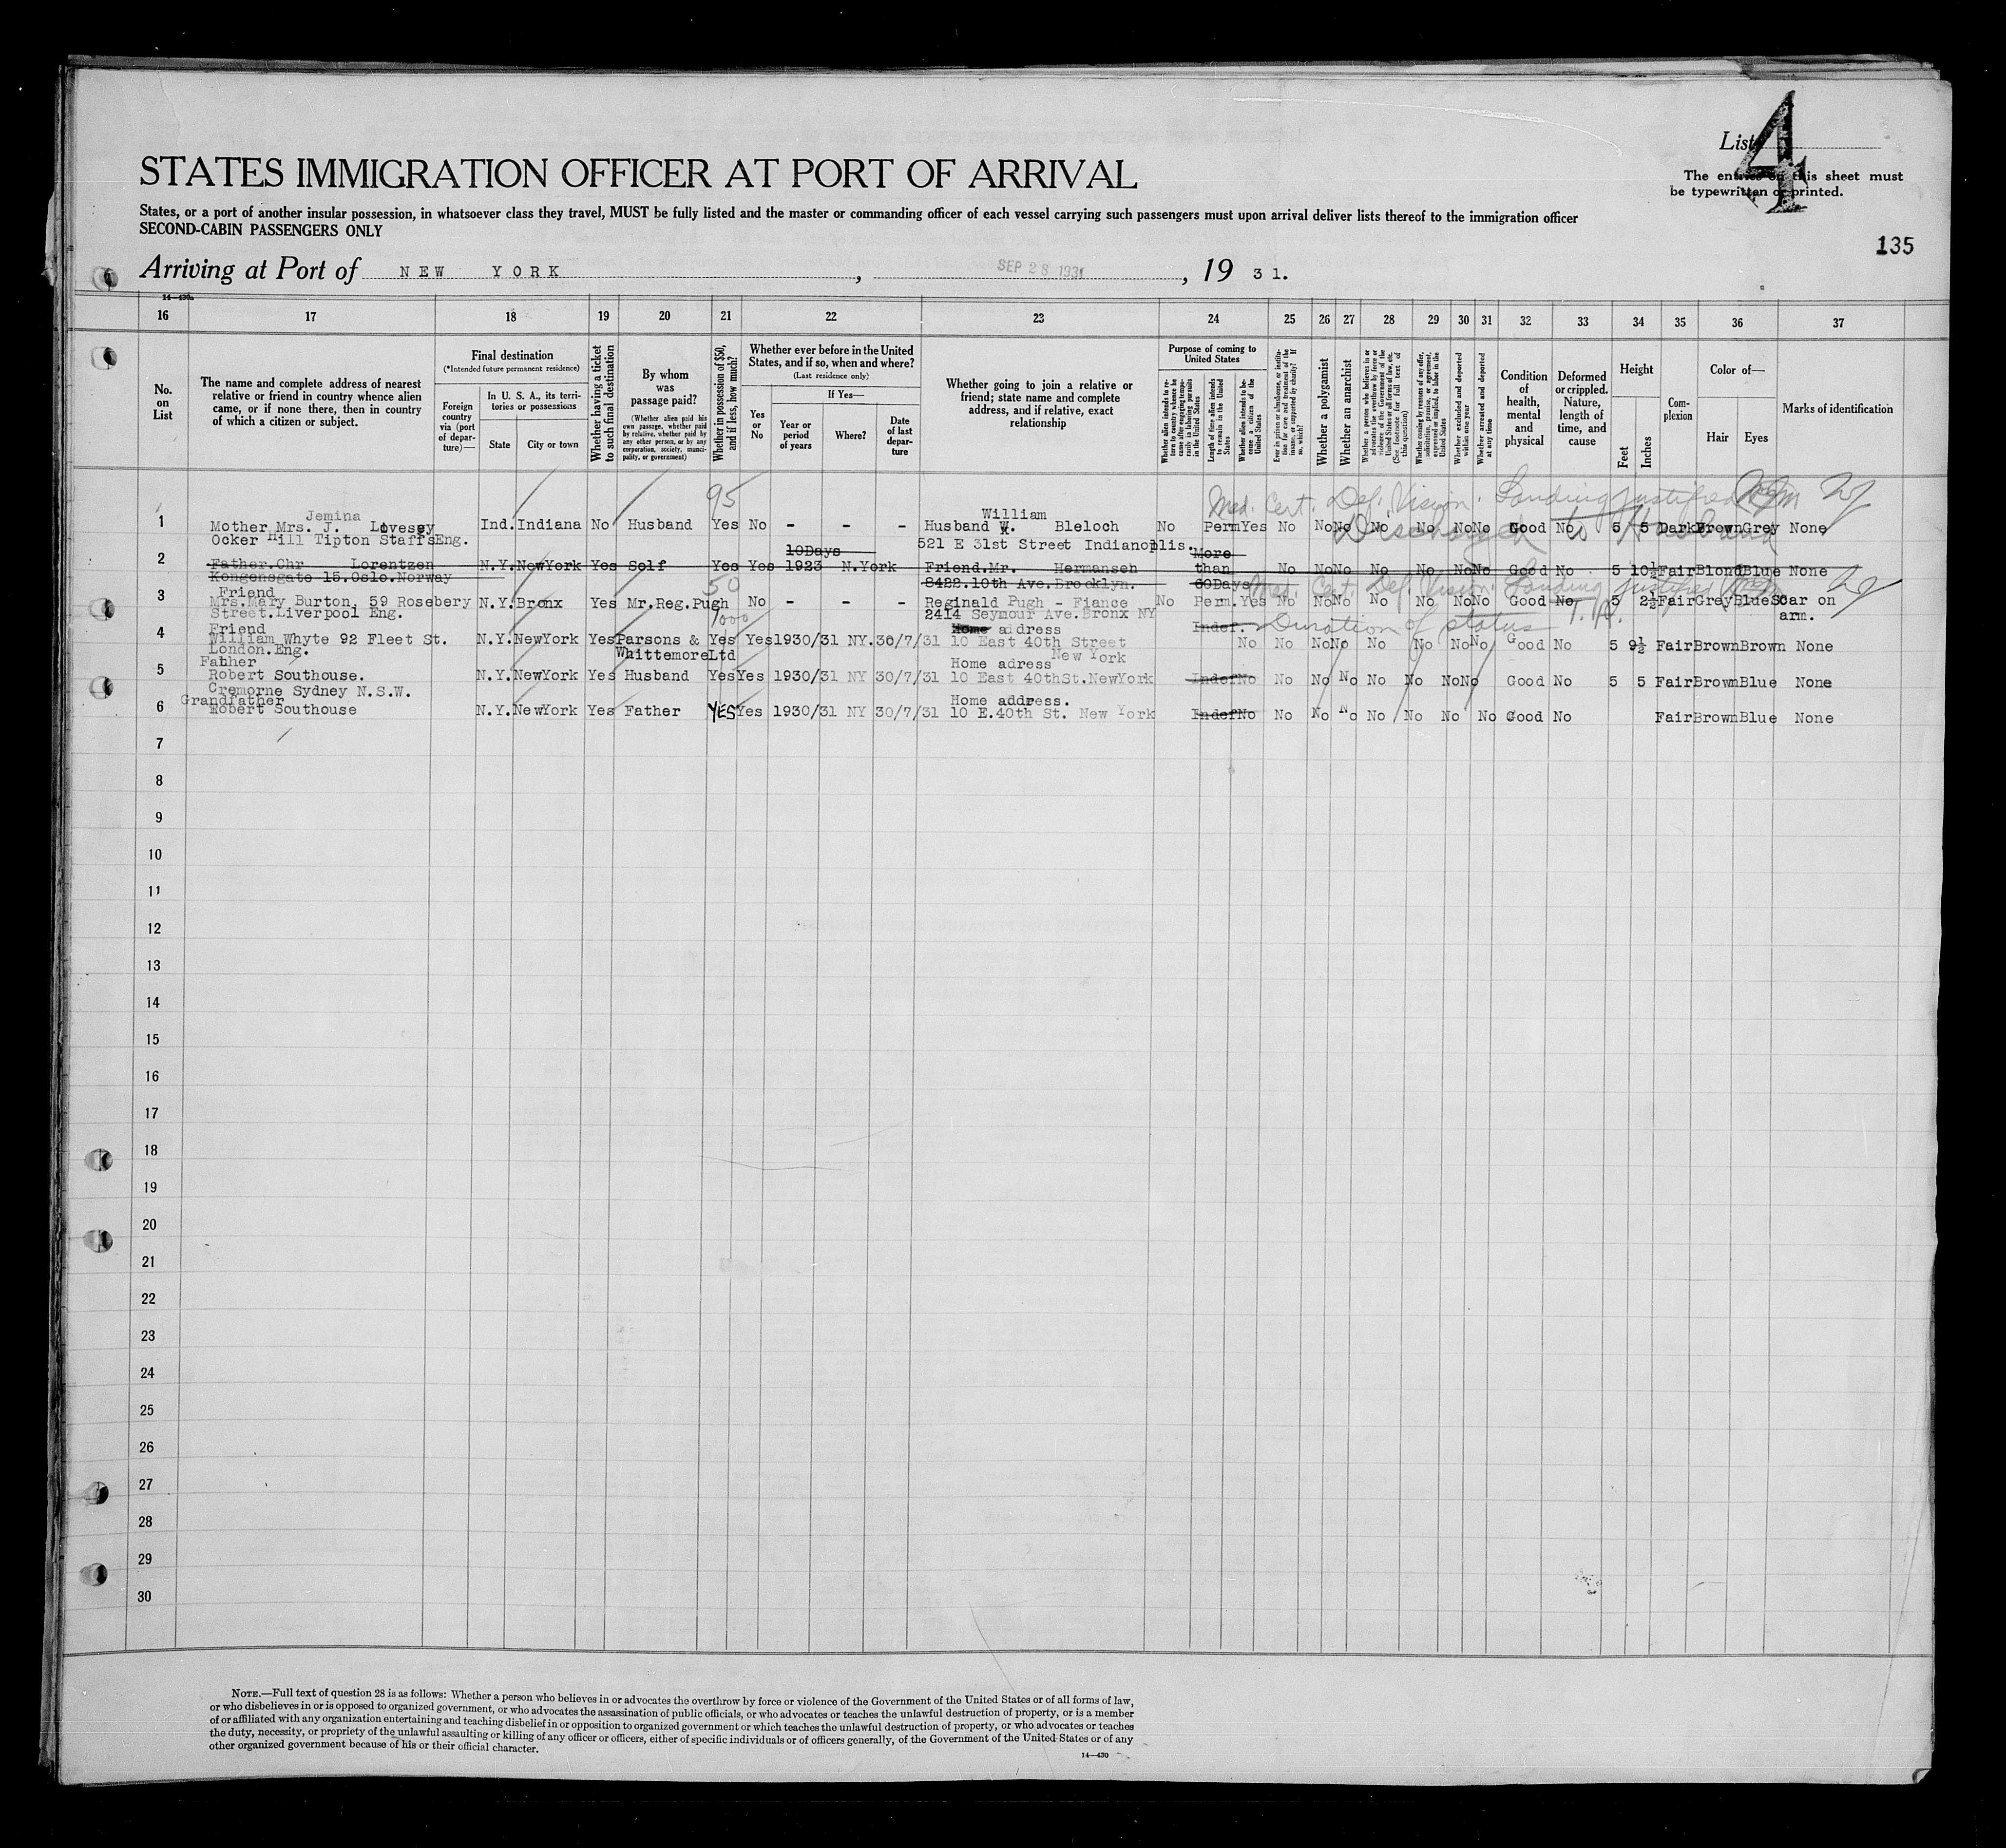 List 4
The entries on this sheet must
be typewritten or printed.
STATES IMMIGRATION OFFICER AT PORT OF ARRIVAL
States, or a port of another insular possession, in whatsoever class they travel, MUST be fully listed and the master or commanding officer of each vessel carrying such passengers must upon arrival deliver lists thereof to the immigration officer
SECOND-CABIN PASSENGERS ONLY
135
Arriving at Port of NEW YORK, SEP 28 1931, 19 31.
14—430a
16 17 18 19 20 21 22 23 24 25 26 27 28 29 30 31 32 33 34 35 36 37
No. on List
The name and complete address of nearest relative or friend in country whence alien came, or if none there, then in country of which a citizen or subject.
Final destination
(*Intended future permanent residence)
Foreign country via (port of departure)—
In U. S. A., its territories or possessions
State
City or town
Whether having a ticket to such final destination
By whom was passage paid?
(Whether alien paid his own passage, whether paid by relative, whether paid by any other person, or by any corporation, society, municipality, or government)
Whether in possession of $50, and if less, how much?
Whether ever before in the United States, and if so, when and where?
(Last residence only)
Yes or No
If Yes—
Year or period of years
Where?
Date of last departure
Whether going to join a relative or friend; state name and complete address, and if relative, exact relationship
Purpose of coming to United States
Whether alien intends to return to country whence he came after engaging temporarily in laboring pursuits in the United States
Length of time alien intends to remain in the United States
Whether alien intends to become a citizen of the United States
Ever in prison or almshouse, or institution for care and treatment of the insane, or supported by charity? If so, which?
Whether a polygamist
Whether an anarchist
Whether a person who believes in or advocates the overthrow by force or violence of the Government of the United States or all forms of law, etc. (See footnote for full text of this question)
Whether coming by reasons of any offer, solicitation, promise, or agreement, expressed or implied, to labor in the United States
Whether excluded and deported within one year
Whether arrested and deported at any time
Condition of health, mental and physical
Deformed or crippled. Nature, length of time, and cause
Height
Feet
Inches
Complexion
Color of—
Hair
Eyes
Marks of identification
95 Med. Cert. Def. Vision. Landing justified
Jemina William
1 Mother Mrs. J. Lovesey Ind. Indiana No Husband Yes No - - - Husband W. Bleloch No Perm Yes No No No No No No No Good No 5 5 Dark Brown Grey None
Discharged to Husband
Ocker Hill Tipton Staffs Eng. 521 E 31st Street Indianoplis.
10Days More
2 Father.Chr Lorentzen N.Y. NewYork Yes Self Yes Yes 1923 N.York Friend.Mr. Hermanseh than No No No No No No No Good No 5 10½ Fair Blond Blue None
Kongensgate 15.Oslo.Norway 50 8422.10th Ave.Brooklyn. 60Days Med. Cert. Def. Vision. Landing justified
Friend
3 Mrs.Mary Burton, 59 Rosebery N.Y. Bronx Yes Mr.Reg.Pugh No - - - Reginald Pugh - Fiance No Perm. Yes No No No No No No No Good No 5 2½ Fair Grey Blue Scar on
Street.Liverpool Eng. 1000 2414 Seymour Ave.Bronx NY arm.
Friend Home address Indef. Duration of status
4 William Whyte 92 Fleet St. N.Y. NewYork Yes Parsons & Yes Yes 1930/31 NY. 30/7/31 10 East 40th Street No No No No No No No No Good No 5 9½ Fair Brown Brown None
London.Eng. Whittemore Ltd New York
Father Home adress
5 Robert Southouse. N.Y. NewYork Yes Husband Yes Yes 1930/31 NY 30/7/31 10 East 40thSt.NewYork Indef No No No No No No No No Good No 5 5 Fair Brown Blue None
Cremorne Sydney N.S.W.
Grandfather Home address.
6 Robert Southouse N.Y. NewYork Yes Father YES Yes 1930/31 NY 30/7/31 10 E.40th St. New York Indef No No No No No No No No Good No Fair Brown Blue None
7
8
9
10
11
12
13
14
15
16
17
18
19
20
21
22
23
24
25
26
27
28
29
30
NOTE.—Full text of question 28 is as follows: Whether a person who believes in or advocates the overthrow by force or violence of the Government of the United States or of all forms of law,
or who disbelieves in or is opposed to organized government, or who advocates the assassination of public officials, or who advocates or teaches the unlawful destruction of property, or is a member
of or affiliated with any organization entertaining and teaching disbelief in or opposition to organized government or which teaches the unlawful destruction of property, or who advocates or teaches
the duty, necessity, or propriety of the unlawful assaulting or killing of any officer or officers, either of specific individuals or of officers generally, of the Government of the United States or of any
other organized government because of his or their official character.
14—430